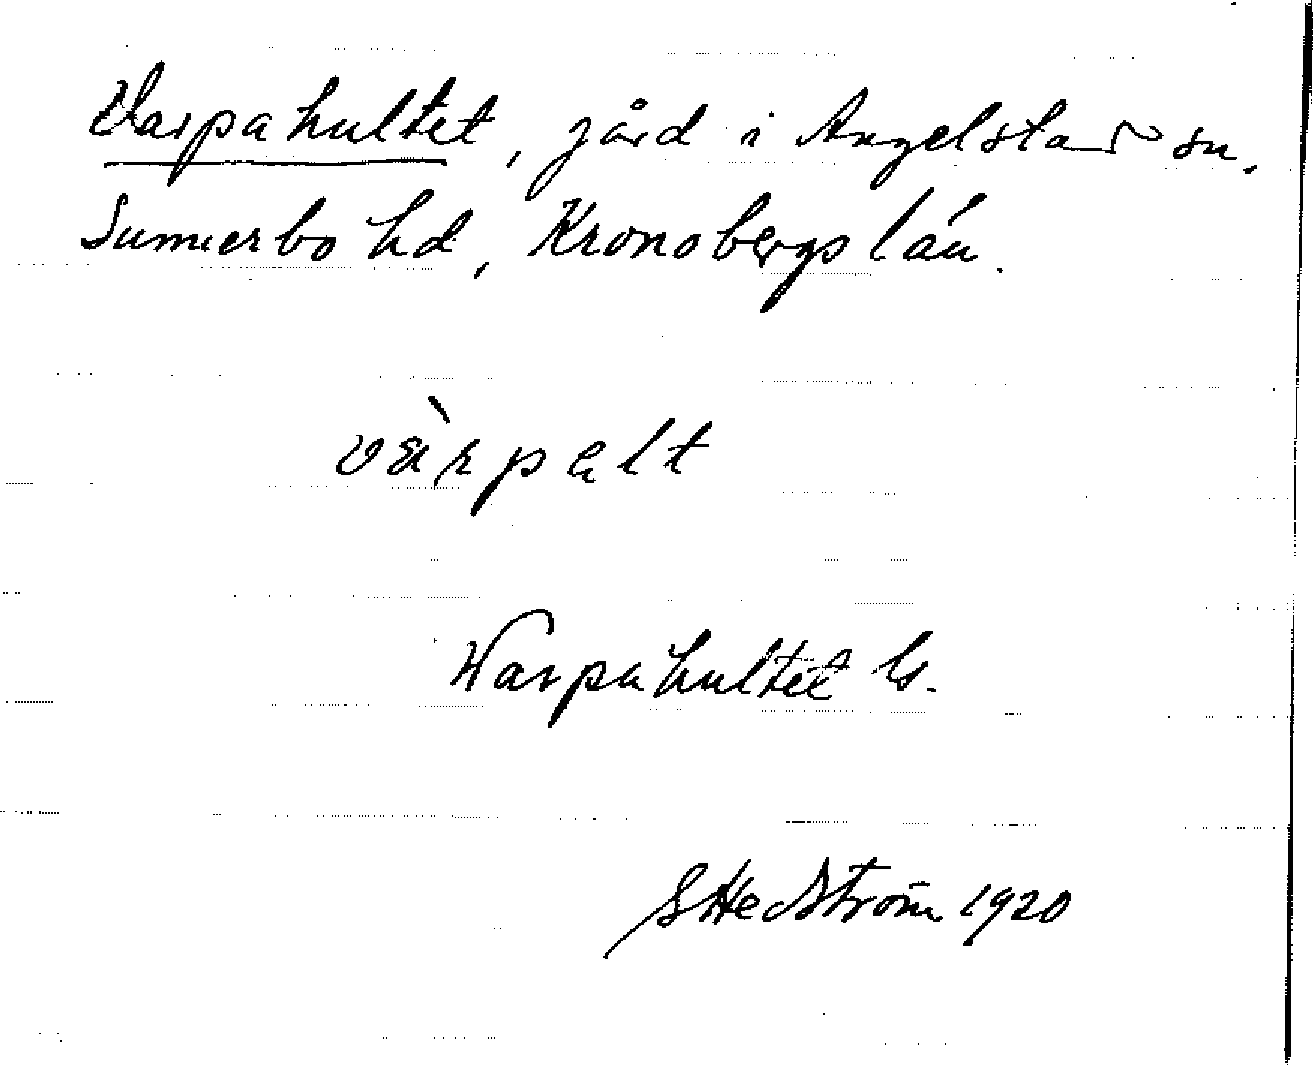 Varpahultet, gård i Angelstad sn.
Sunnerbo hd, Kronobergs län.
Warpahultet
GHedström 1920